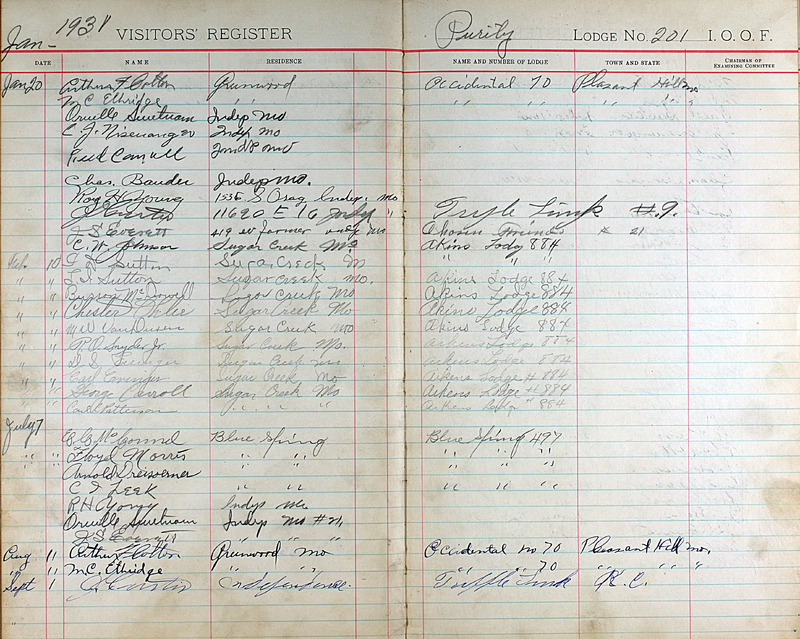 Jan- 1931 VISITORS' REGISTER
Purity LODGE NO. 201 I. O. O. F.
DATE NAME RESIDENCE NAME AND NUMBER OF LODGE TOWN AND STATE CHAIRMAN OF EXAMINING COMMITTEE
Jan 20 Arthur F Cotton Greenwood Occidental 70 Pleasant Hill Mo
M C Ethridge " " " " " "
Orville Swetnam Indep Mo
E. J. Indep Mo
Fred Indp Mo
Chas. Bauder Indep Mo.
Roy H Young 1536 S Osag Indep. Mo
J Curtis 11620 E 16 Indep " Triple Link #9.
J S Everett 419 W farmer indep Mo " 21
C. W. Johnson Sugar Creek Mo Akins Lodg 884
Feb. 10 Sutton Sugar Creek M " " "
" " L. Sutton Sugar Creek Mo. Akins Lodge 884
" " McDowell Sugar Creek Mo Akins Lodge 884
" " Chester Sugar Creek Mo Akins Lodge 884
" " W W VanDusen Sugar Creek Mo Akins Lodge 884
" " R O Snyder Jr. Sugar Creek Mo. Aikens Lodge 884
" " D. S. Sugar Creek Mo Aikens Lodge 884
" " Earl Sugar Creek Mo Aikens Lodge # 884
" " George Carroll Sugar Creek Mo Aikens Lodge # 884
Carl Patterson " " " Aikens Lodge " 884
July 7
C. C. McConnel Blue Spring Blue Spring 497
" " Floyd Morris " " " " "
Arnold " " " "
C I Leek " " " " "
R H Young Indep Mo
Orville Swetnam Indep Mo # 21
J. S. Everett " " "
Aug 11 Arthur F Cotton Greenwood Mo Occidental no 70 Pleasant Hill Mo.
" 11 M C Ethridge " " " " 70 " " "
Sept 1 J Curtis Independence. Tripple Link K. C.